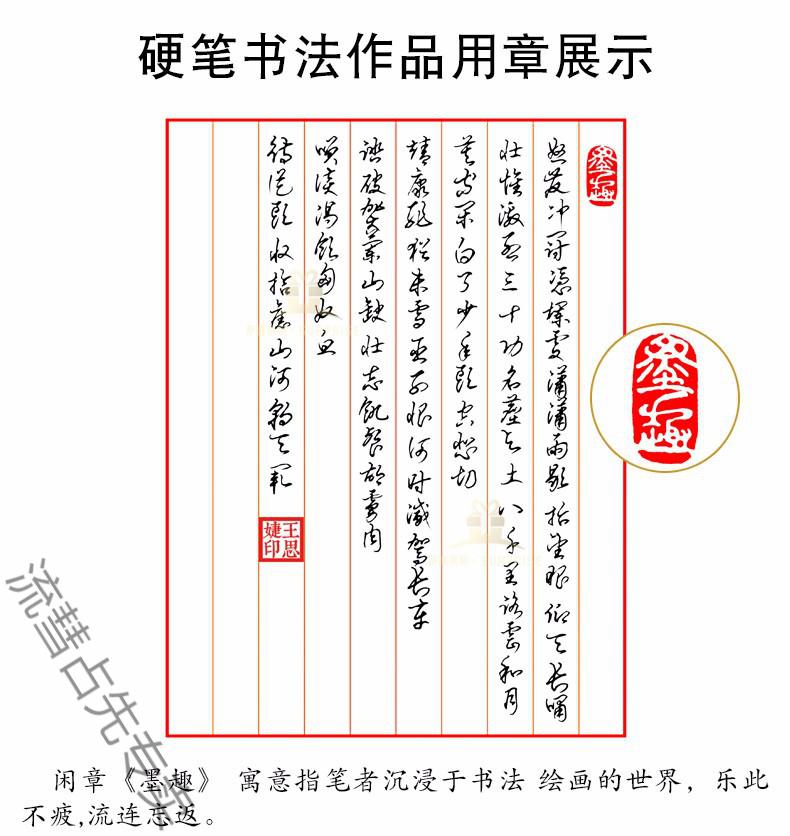 硬笔书法作品用章展示
墨趣
怒发冲冠憑欄处潇潇雨歇抬望眼仰天长啸
壮怀激烈三十功名尘与土八千里路云和月
莫等闲白了少年头空悲切
靖康耻犹未雪臣子恨何时灭驾长车
踏破贺兰山缺壮志饥餐胡虏肉
笑谈渴饮匈奴血
待从头收拾旧山河朝天阙
王思婕印
墨趣
流彗占先专
闲章《墨趣》 寓意指笔者沉浸于书法 绘画的世界，乐此
不疲,流连忘返。